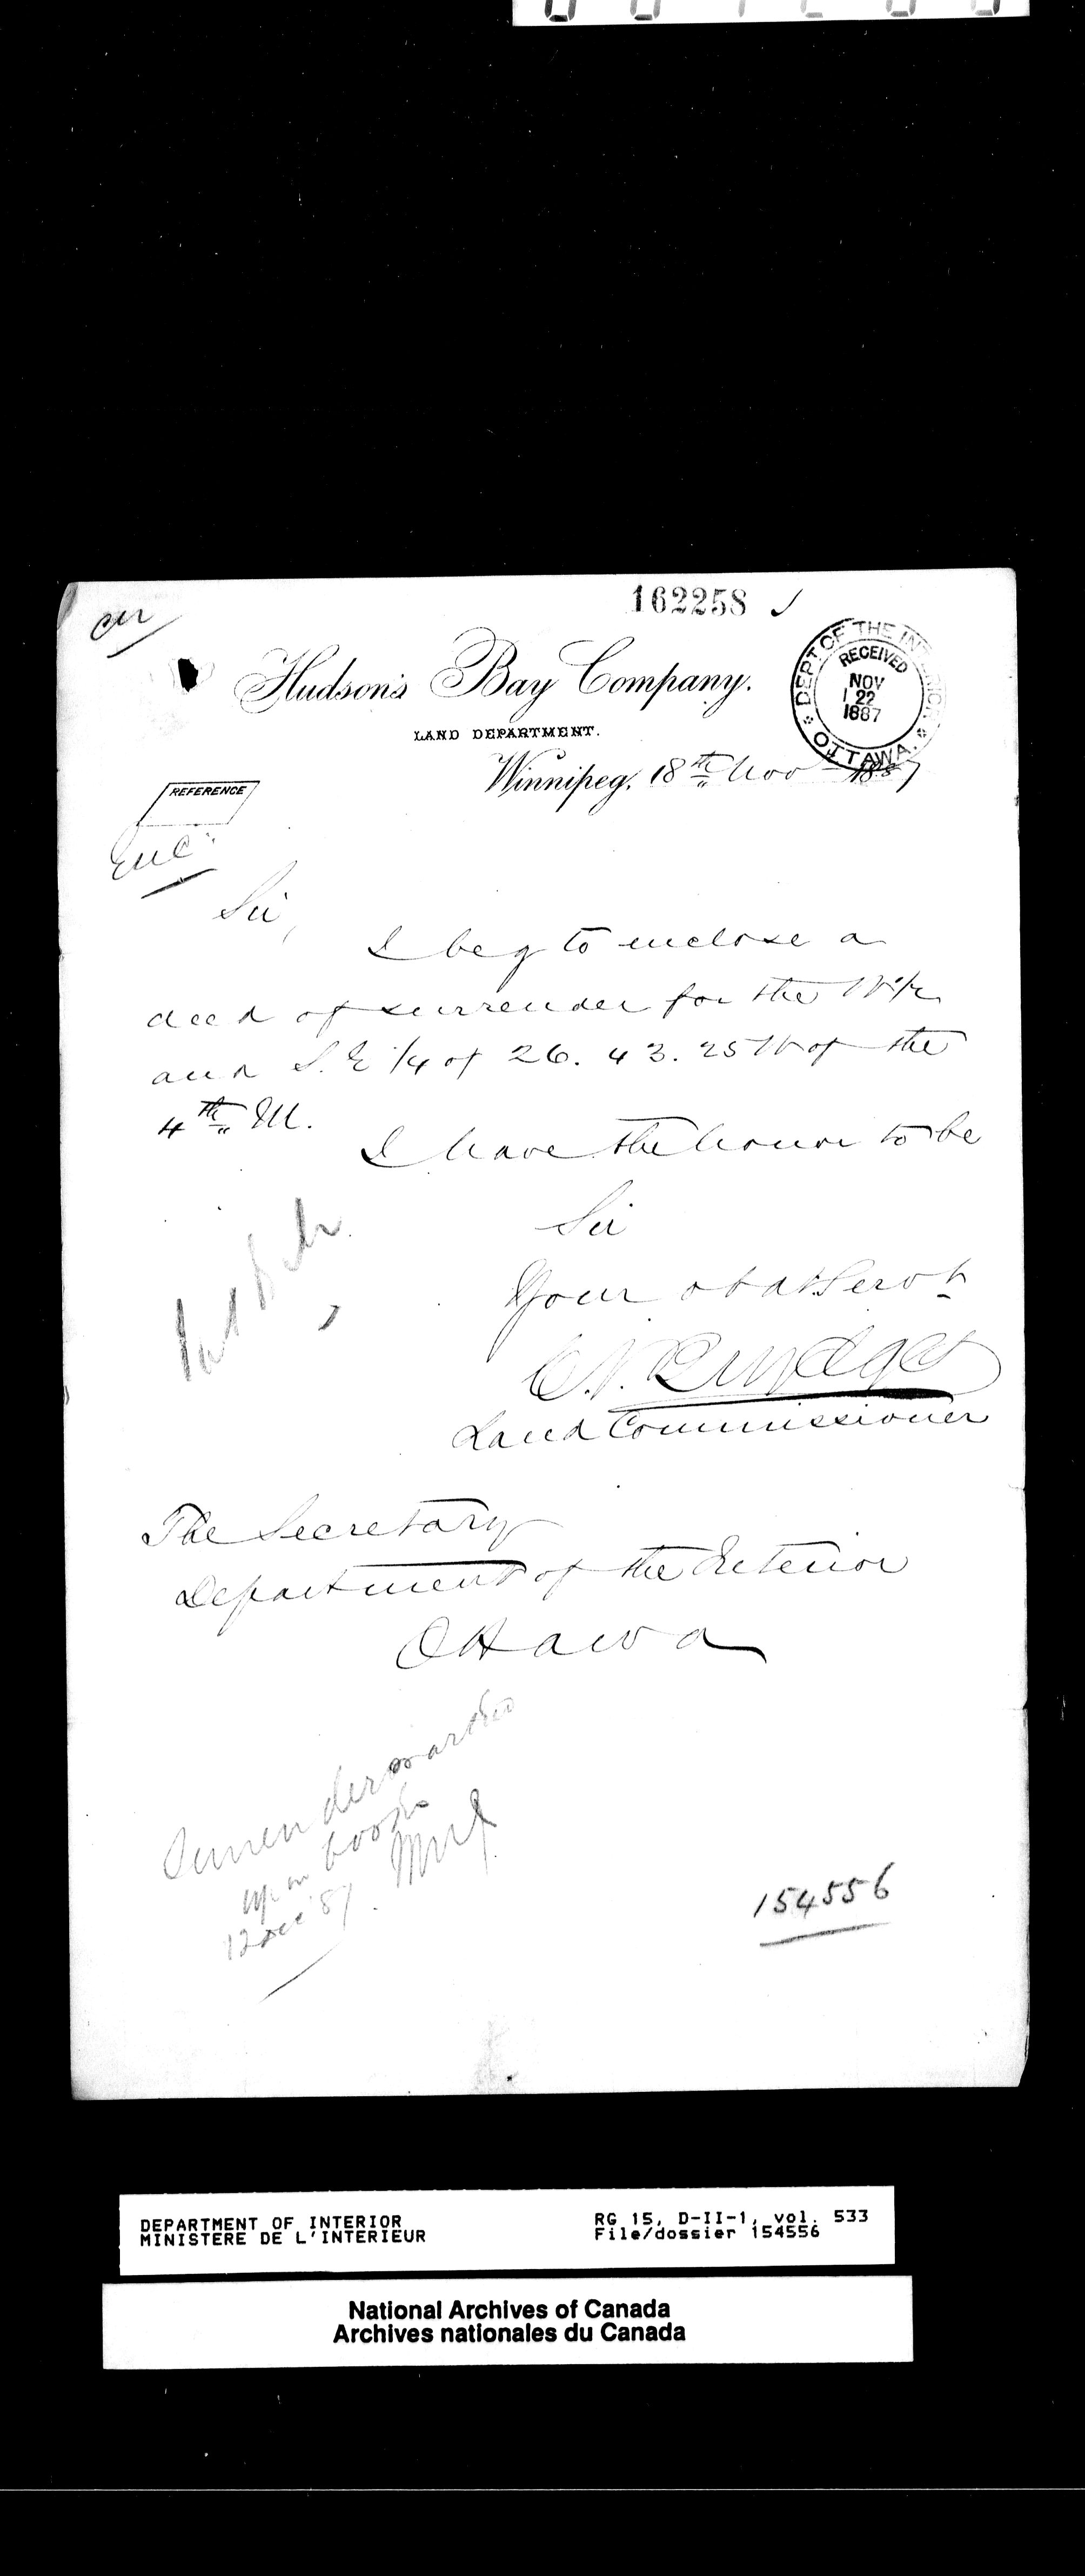 162258
Hudson's Bay Company.
LAND DEPARTMENT.
DEPT OF THE INTERIOR
RECEIVED
NOV
22
1887
OTTAWA.
Winnipeg, 18th Nov 1887
REFERENCE
Enc.
Sir,
I beg to enclose a
deed of surrender for the W 1/2
and S. E 1/4 of 26. 43. 25 W of the
4th M.
I have the honor to be
Sir
Your obdt Servt
Land Commissioner
The Secretary
Department of the Interior
Ottawa
Surrender marked
upon books
12 Dec '87.
154556
DEPARTMENT OF INTERIOR
MINISTERE DE L'INTERIEUR
RG 15, D-II-1, vol. 533
File/dossier 154556
National Archives of Canada
Archives nationales du Canada